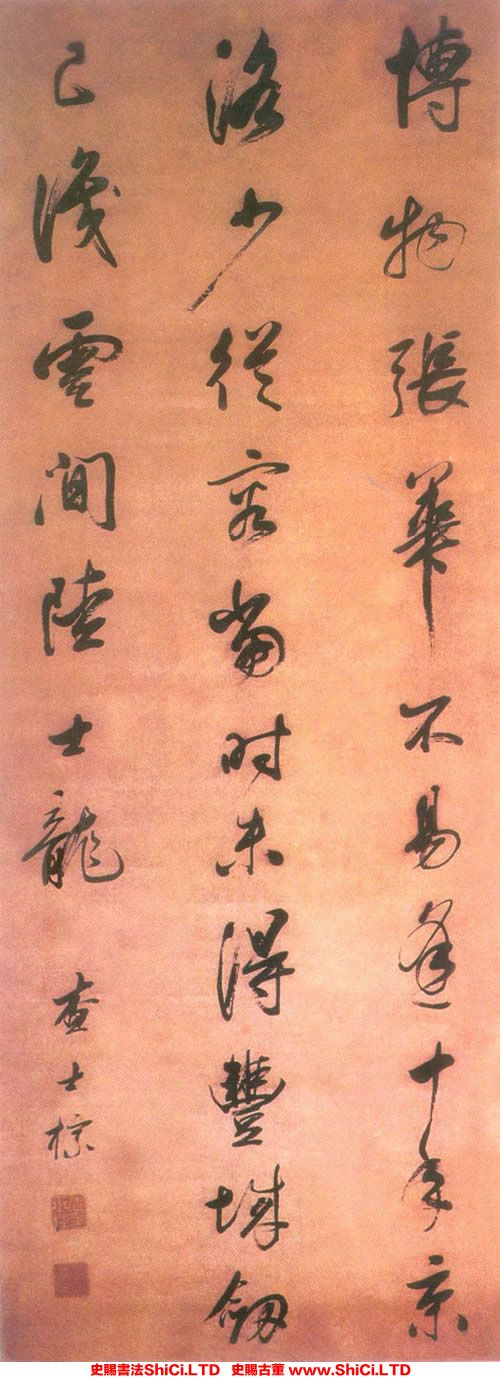 博物張華不易逢十年京
洛少從容當時未得豐城劒
已識雲間陸士龍
查士標
史賜書法ShiCi.LTD 史賜古董 www.ShiCi.LTD